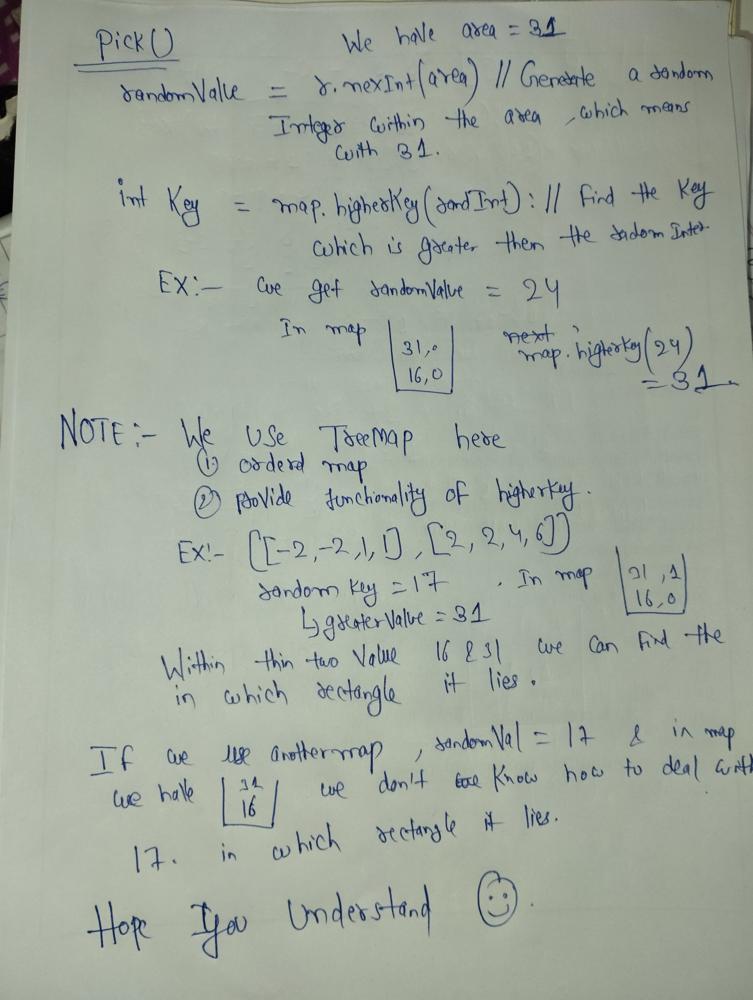 Pick()
We have area = 31
randomValue = r.nexInt(area) // Generate a random
Integer within the area, which means
with 31.
int Key = map.higherKey(randInt): // Find the Key
which is greater then the radom Inter.
EX:- we get randomValue = 24
In map
31,0
16,0
next
map.higherkey(24)
= 31.
NOTE:- We Use TreeMap here
① orderd map
② provide functionality of higherkey.
EX:- [[-2,-2,1,1], [2,2,4,6]]
random key = 17 . In map
31,1
16,0
↳ greaterValue = 31
Within thin two Value 16 & 31 we can find the
in which rectangle it lies.
If we use anothermap, randomVal = 17 & in map
we have
31
16
we don't Know how to deal with
17. in which rectangle it lies.
Hope You Understand ☺.